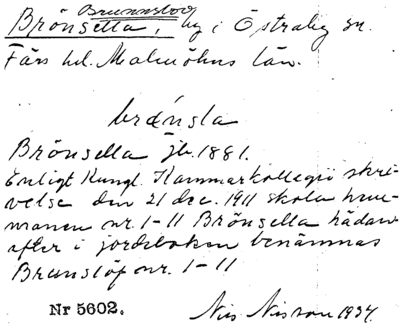 Brunnslöv
Brönsella, by i Östraby sn.
Färs hd. Malmöhus län.
brǽnsla
Brönsella jb. 1881.
Enligt Kungl. Kammarkollegii skri-
velse den 21 dec. 1911 skola hem-
manen nr. 1-11 Brönsella hädan-
efter i jordeboken benämnas
Brunslöf nr. 1-11
Nr 5602.
Nils Nilsson 1934.